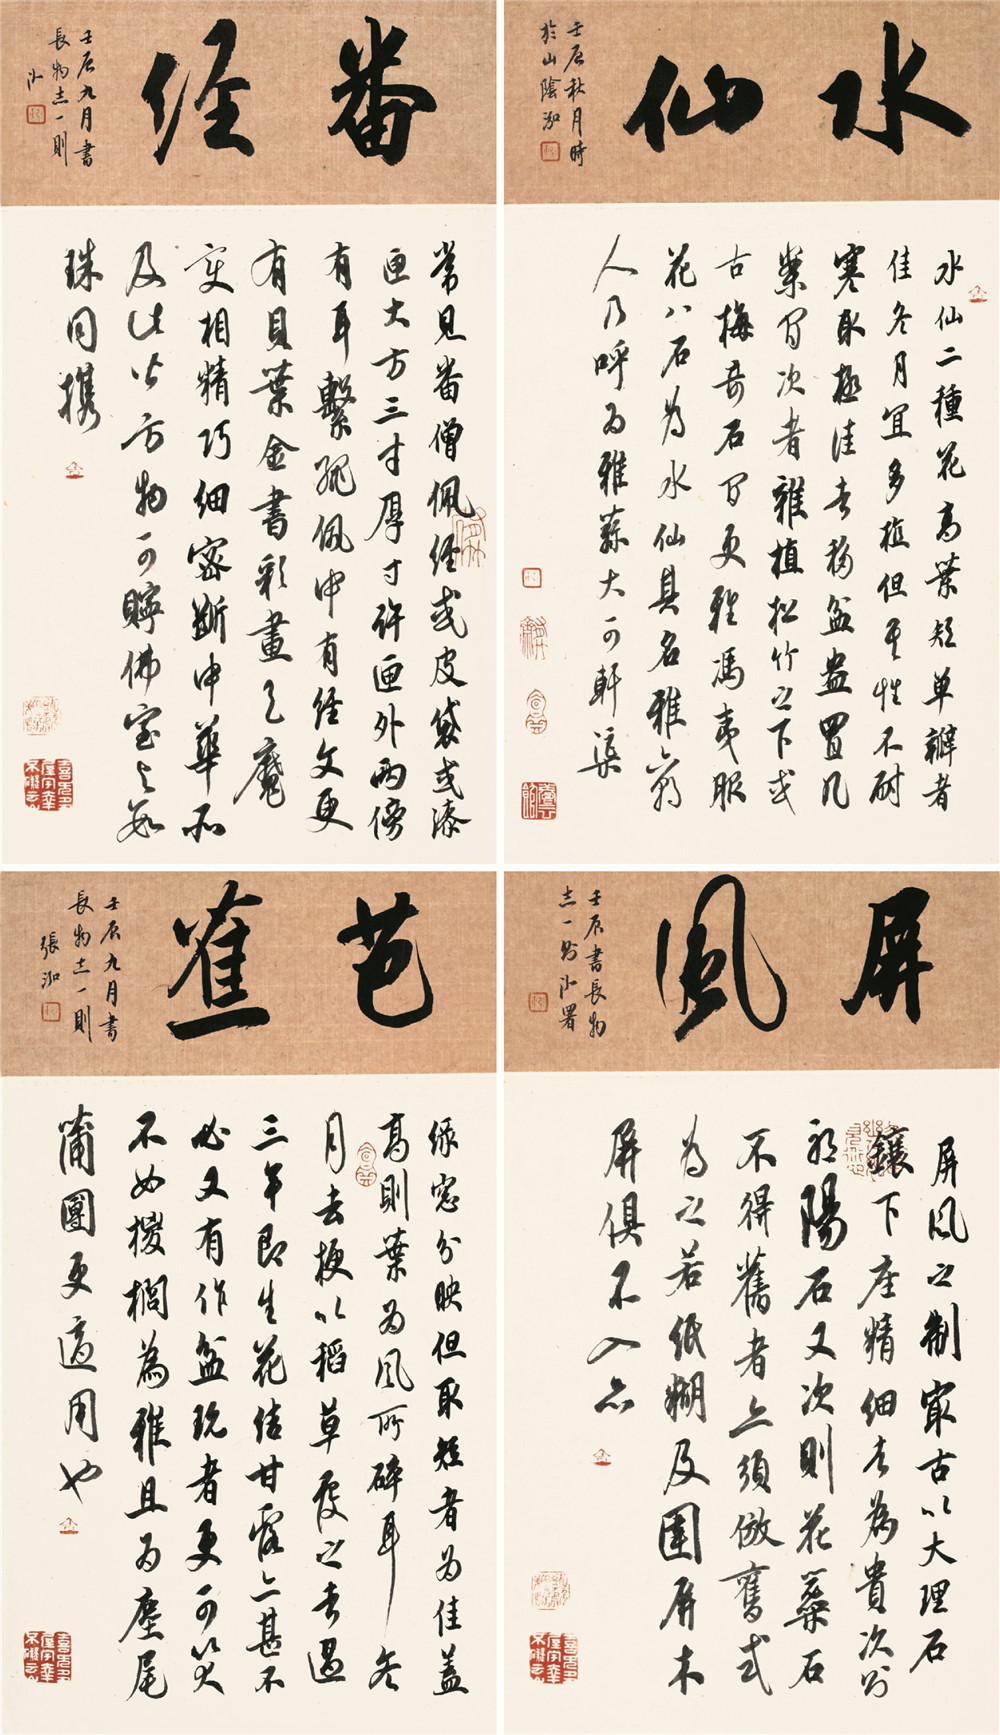 水仙
壬辰秋月時
於山陰泓
水仙二種花高葉短單瓣者
佳冬月宜多植但其性不耐
寒取極佳者移盆盎置几
案間次者雜植松竹之下或
古梅奇石間更雅馮夷服
花八石為水仙其名雅六朝
人乃呼為雅蒜大可軒渠
番經
壬辰九月書
長物志一則
常見番僧佩經或皮袋或漆
匣大方三寸厚寸許匣外兩傍
有耳繫繩佩中有經文更
有貝葉金書彩畫天魔
變相精巧細密斷中華所
及此皆方物可貯佛室與數
珠同携
屏風
壬辰書長物
志一則 署
屏風之制最古以大理石
鑲下座精細者為貴次則
祁陽石又次則花蕊石
不得舊者亦須倣舊式
為之若紙糊及圍屏木
屏俱不入品
芭蕉
壬辰九月書
長物志一則
張泓
綠窓分映但取短者為佳蓋
高則葉為風所碎耳冬
月去梗以稻草覆之者過
三年即生花結甘露亦甚不
必又有作盆玩者更可笑
不如椶櫚為雅且為麈尾
蒲團更適用也